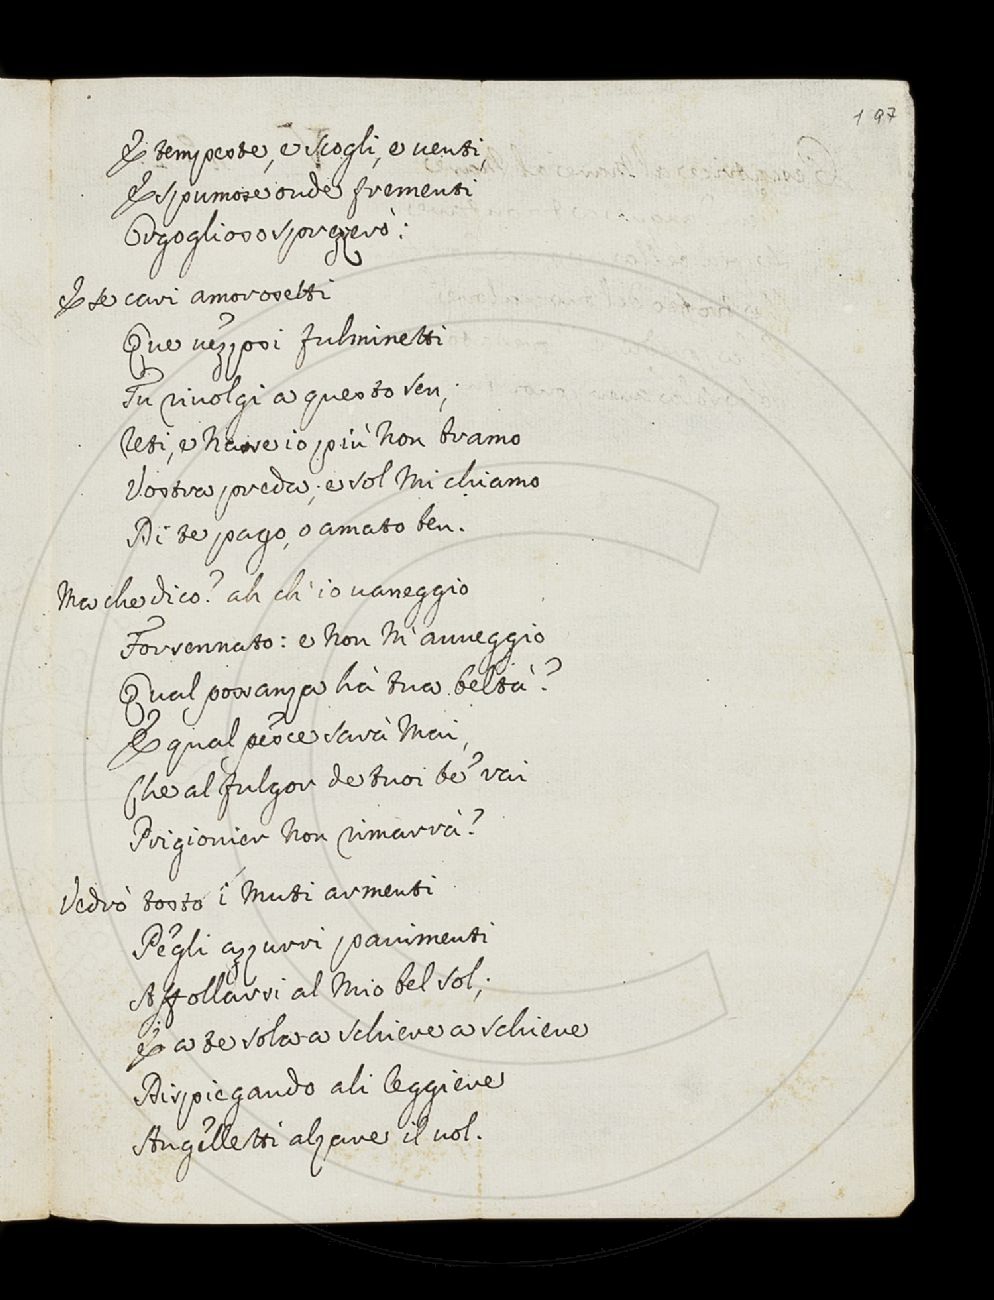 197
E tempeste, e scogli, e venti,
E spumose onde frementi
Orgoglioso sprezzerò:
E se cari amorosetti
Que' vezzosi fulminetti
Tu rivolgi a questo sen,
Reti, e nasse io più non bramo
Vostra preda; e sol mi chiamo
Di te pago, o amato ben.
Ma che dico? ah ch'io vaneggio
Forsennato: e non m'avveggio
Qual possanza hà tua beltà?
E qual pesce sarà mai,
Che al fulgor de tuoi be' rai
Prigionier non rimarrà?
Vedrò tosto i muti armenti
Pe'gli azzurri pavimenti
Affollarsi al mio bel sol;
E a te sola a schiere a schiere
Dispiegando ali leggiere
Augelletti alzare il vol.